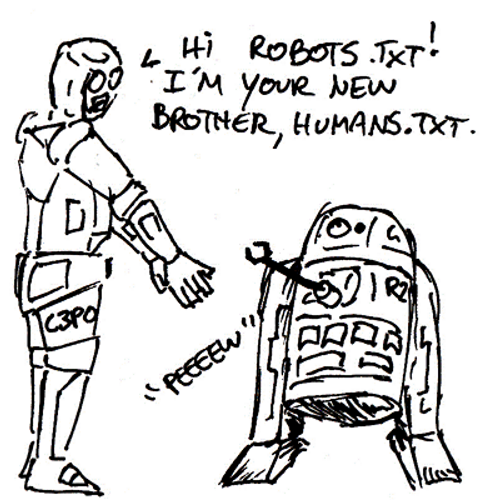 Hi ROBOTS.TXT!
I'M YOUR NEW
BROTHER, HUMANS.TXT.
C3PO
R2
"PEEEEW"